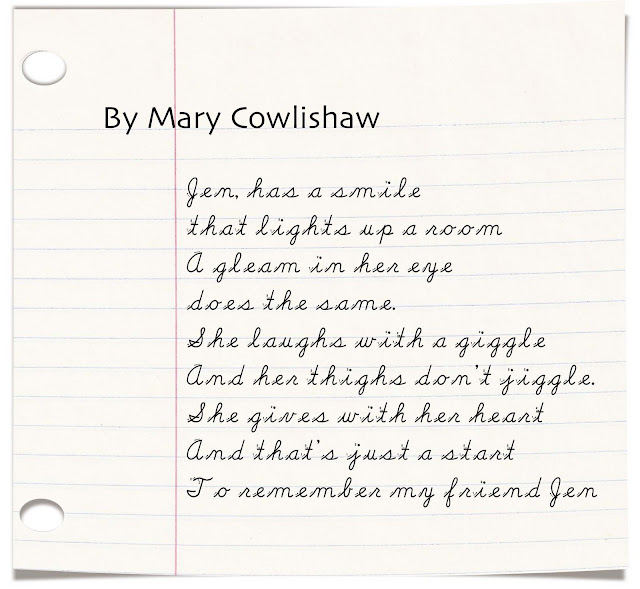 By Mary Cowlishaw
Jen, has a smile
that lights up a room
A gleam in her eye
does the same.
She laughs with a giggle
And her thighs don't jiggle.
She gives with her heart
And that's just a start
To remember my friend Jen